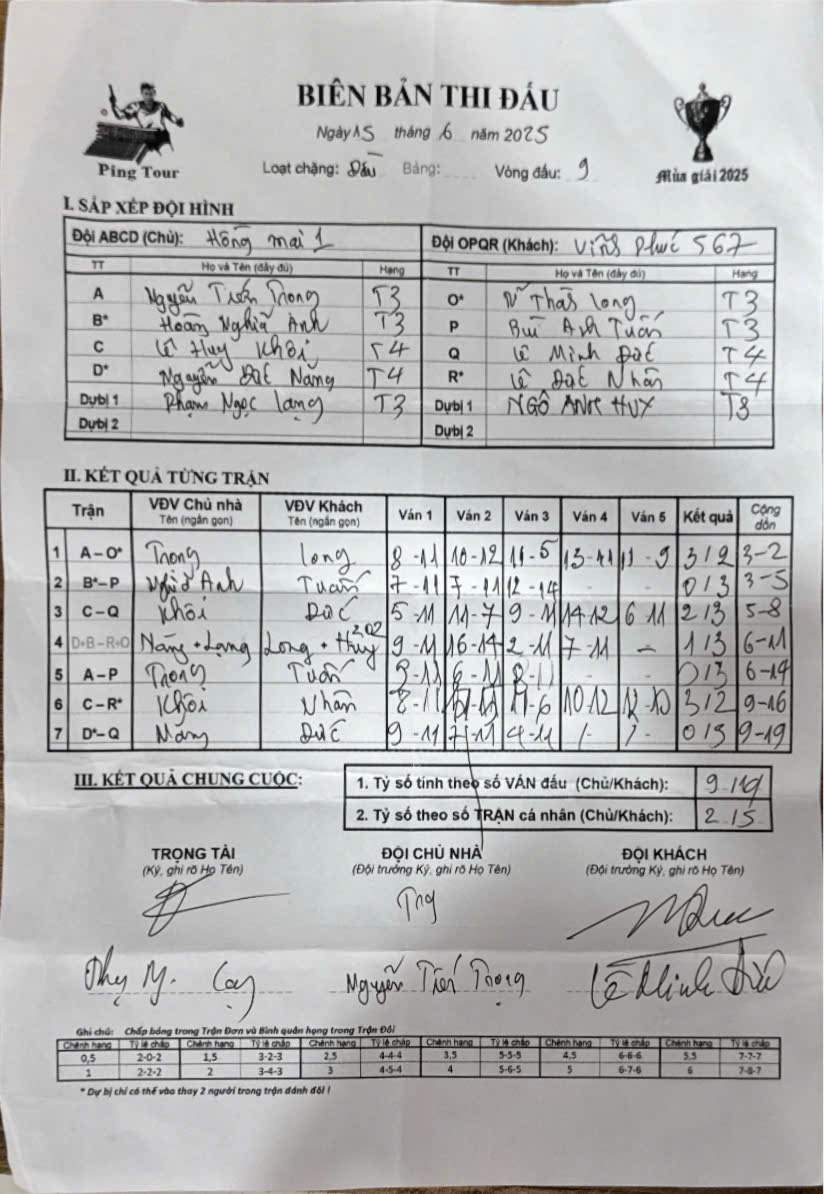 BIÊN BẢN THI ĐẤU
Ngày 15 tháng 6 năm 2025
Ping Tour
Loạt chặng: Đầu Bảng: Vòng đấu: 9
Mùa giải 2025
I. SẮP XẾP ĐỘI HÌNH
Đội ABCD (Chủ): Hồng Mai 1 Đội OPQR (Khách): Vĩnh Phúc 567
TT Họ và Tên (đầy đủ) Hạng TT Họ và Tên (đầy đủ) Hạng
A Nguyễn Tiến Trọng T3 O* Thăng Long T3
B* Hoàng Nghĩa Anh T3 P Bùi Anh Tuấn T3
C Lê Huy Khôi T4 Q Lê Minh Đức T4
D* Nguyễn Đức Năng T4 R* Lê Đức Nhân T4
Dự bị 1 Phạm Ngọc Lạng T3 Dự bị 1 NGÔ ANH HUY T3
Dự bị 2 Dự bị 2
II. KẾT QUẢ TỪNG TRẬN
Trận VĐV Chủ nhà Tên (ngắn gọn) VĐV Khách Tên (ngắn gọn) Ván 1 Ván 2 Ván 3 Ván 4 Ván 5 Kết quả Cộng dồn
1 A – O* Trọng Long 8-11 10-12 11-5 13-11 11-9 3/2 3-2
2 B* – P Nghĩa Anh Tuấn 7-11 7-11 12-14 - - 0/3 3-5
3 C – Q Khôi Đức 5-11 11-7 9-11 14-12 6-11 2/3 5-8
4 D+B – R+O Năng + Lạng Long + Huy 9-11 16-14 2-11 7-11 - 1/3 6-11
5 A – P Trọng Tuấn 3-11 6-11 8-11 - - 0/3 6-14
6 C – R* Khôi Nhân 8-11 11-6 10-12 12-10 3/2 9-16
7 D* – Q Năng Đức 9-11 7-11 4-11 / - / - 0/3 9-19
III. KẾT QUẢ CHUNG CUỘC:
1. Tỷ số tính theo số VÁN đấu (Chủ/Khách): 9/19
2. Tỷ số theo số TRẬN cá nhân (Chủ/Khách): 2/5
TRỌNG TÀI ĐỘI CHỦ NHÀ ĐỘI KHÁCH
(Ký, ghi rõ Họ Tên) (Đội trưởng Ký, ghi rõ Họ Tên) (Đội trưởng Ký, ghi rõ Họ Tên)
Nguyễn Tiến Trọng Lê Minh Đức
Ghi chú: Chấp bóng trong Trận Đơn và Bình quân hạng trong Trận Đôi
Chênh hạng Tỷ lệ chấp Chênh hạng Tỷ lệ chấp Chênh hạng Tỷ lệ chấp Chênh hạng Tỷ lệ chấp Chênh hạng Tỷ lệ chấp Chênh hạng Tỷ lệ chấp
0,5 2-0-2 1,5 3-2-3 2,5 4-4-4 3,5 5-5-5 4,5 6-6-6 5,5 7-7-7
1 2-2-2 2 3-4-3 3 4-5-4 4 5-6-5 5 6-7-6 6 7-8-7
* Dự bị chỉ có thể vào thay 2 người trong trận đánh đôi !